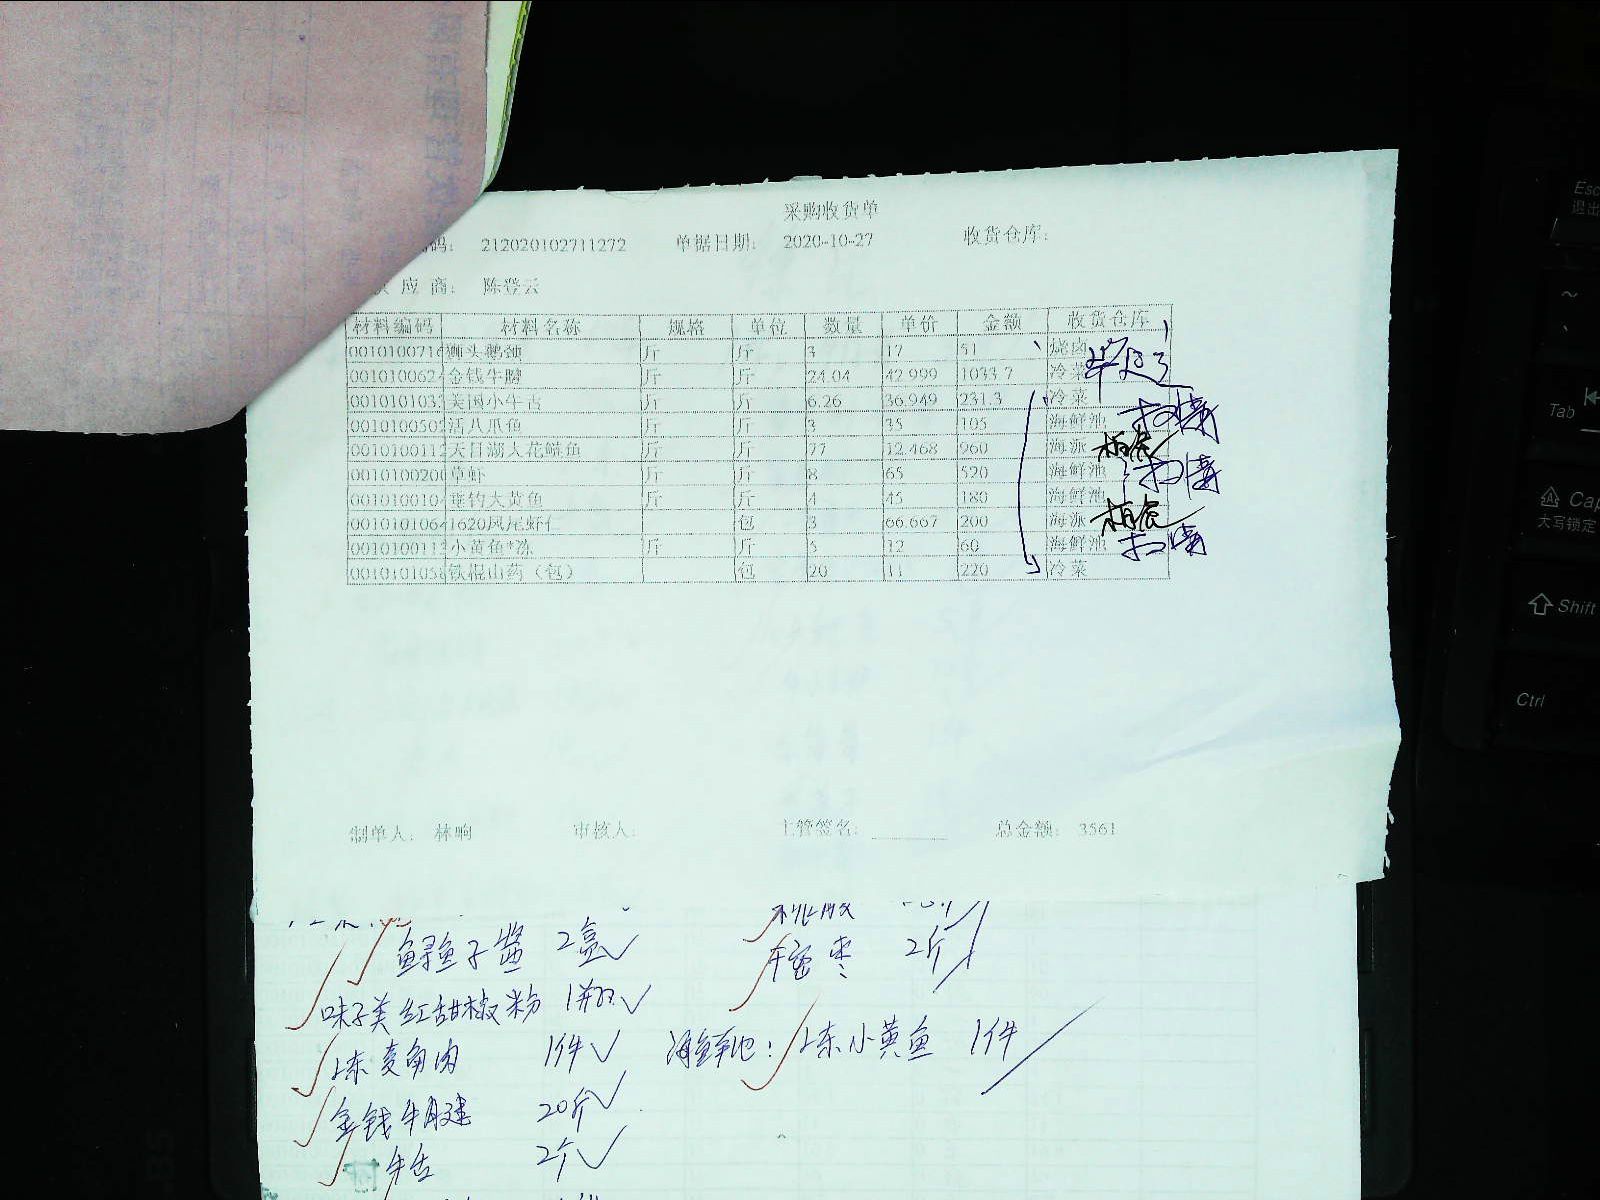 采购收货单
码： 212020102711272 单据日期： 2020-10-27 收货仓库：
应 商： 陈登云
材料编码 材料名称 规格 单位 数量 单价 金额 收货仓库
0010100716 狮头鹅颈 斤 斤 3 17 51 烧卤
001010062 金钱牛腱 斤 斤 24.04 42.999 1033.7 冷菜
001010103 美国小牛舌 斤 斤 6.26 36.949 231.3 冷菜
001010050 活八爪鱼 斤 斤 3 35 105 海鲜池
001010011 天目湖大花鲢鱼 斤 斤 77 12.468 960 海派
001010020 草虾 斤 斤 8 65 520 海鲜池
001010010 垂钓大黄鱼 斤 斤 4 45 180 海鲜池
001010106 1620凤尾虾仁 包 3 66.667 200 海派
001010011 小黄鱼*冻 斤 斤 5 12 60 海鲜池
001010105 铁棍山药（包） 包 20 11 220 冷菜
制单人： 林响 审核人： 主管签名： 总金额： 3561
鲟鱼子酱 2盒
蜜枣 2斤
味子美红甜椒粉 1瓶
冻麦角肉 1件
海鲜池：冻小黄鱼 1件
金钱牛腱 20斤
牛舌 2个
Esc
退出
Tab
Cap
大写锁定
Shift
Ctrl